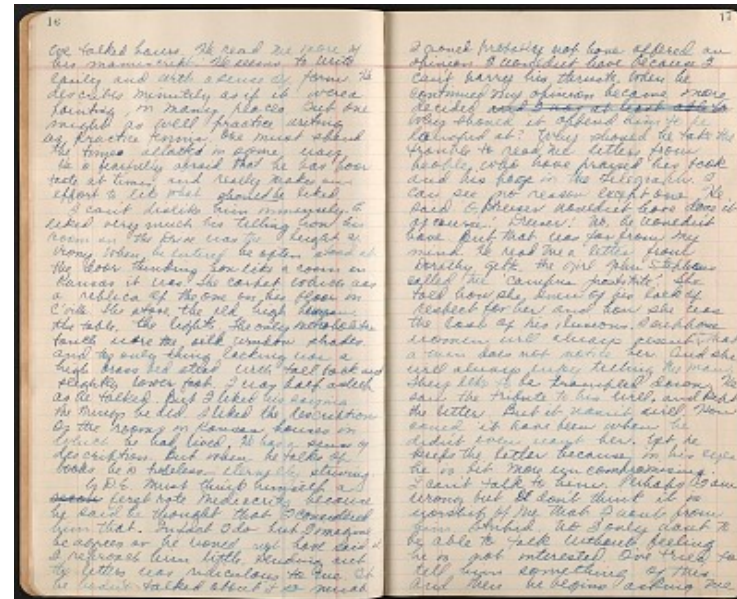 16
We talked hours. He read me more of
his manuscript. He seems to write
easily and with a sense of form. He
describes minutely as if it were a
painting, in many places. But one
might as well practice writing
as practice tennis. One must
the times attacked in some way
fearfully afraid that he has poor
taste at times, and really makes an
effort to like what should be liked.
I can't dislike him immensely. I
liked very much his telling how his
room in the was the height of
irony. When he entered he often stood at
the door thinking how like a room in
Kansas it was. The carpet which was
a replica of the one on his floor in
C'ville. The stove, the old high
the table, the lights. The only metropolitan
touch were the old window shades
and the only thing lacking was a
high brass bed stead with tall back and
slightly lower foot. I was half asleep
as he talked. But I liked his saying
the things he did. I liked the description
of the rooms in Kansas houses in
which he had lived. He has a sense of
description. But when he talks of
books he is tireless eternally striving.
must think himself a
first rate mediocrity because
he said he thought that I considered
him that. In fact I do but I imagine
he agrees or he would not have said it
I reproach him little. Sending out
the letters was ridiculous to me. If
he hadn't talked about it so much
17
I would probably not have offered an
opinion. I wouldn't have because I
can't parry his thrusts. When he
continued my opinion became more
decided
Why should it offend him to be
laughed at? Why should he take the
trouble to read me letters from
people who have praised his book
and his page in the Telegraph. I
can see no reason except one. He
said "Dreiser wouldn't have done it
of course." Dreiser! No, he wouldn't
have but that was far from my
mind. He read me a letter from
Dorothy the girl John Stephens
called the "campus prostitute". She
told how she knew of his lack of
respect for her and how she was
the loss of his illusions. I suppose
women will always resent that
a man does not notice her. And she
will always enjoy telling the man.
They like to be trampled down. He
saw the tribute to his will, and kept
the letter. But it wasn't will. How
could it have been when he
didn't even want her. Yet he
keeps the letter because in his eyes
he is bit more uncompromising.
I can't talk to him. Perhaps I am
wrong but I don't think it is
worship of me that I want from
him. No I only want to
be able to talk without feeling
he is not interested. I've tried to
tell him something of this
and then he begins asking me